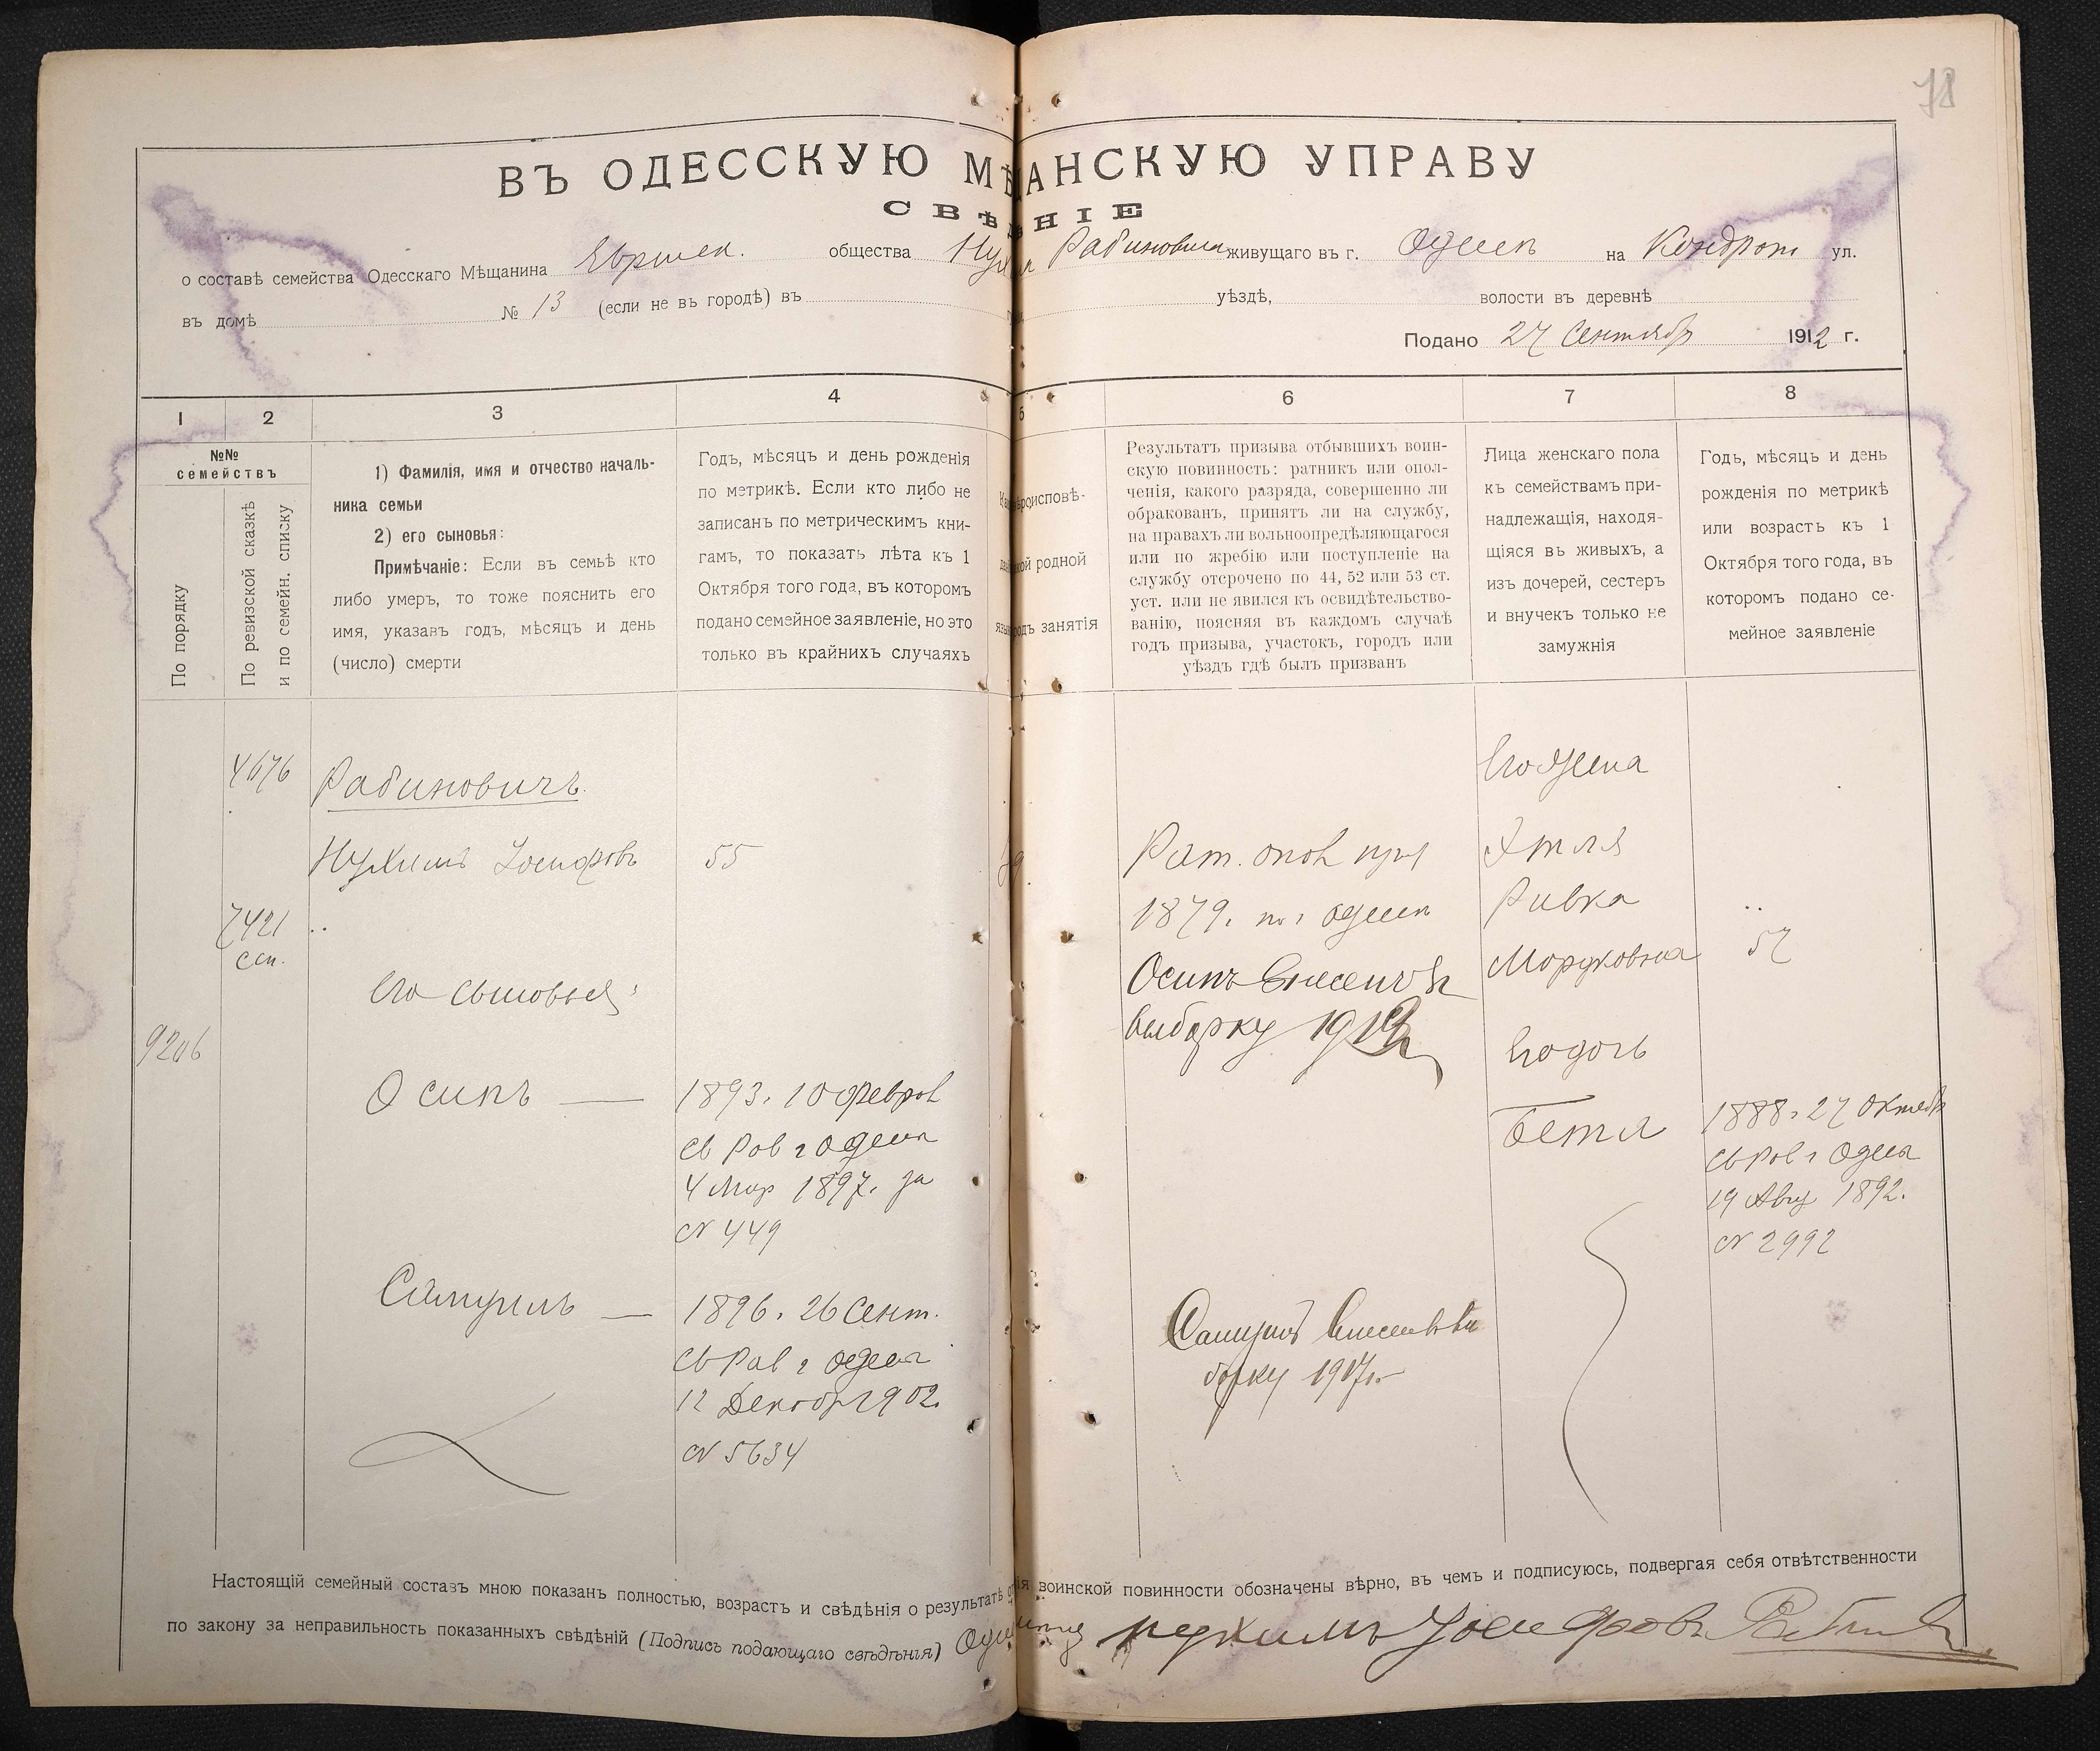 78
ВЪ ОДЕССКУЮ МѢЩАНСКУЮ УПРАВУ
СВѢДѢНІЕ
о составѣ семейства Одесскаго Мѣщанина Еврейск. общества Рабиновича живущаго въ г. Одессѣ на Кондрат ул.
въ домѣ № 13 (если не въ городѣ) въ уѣздѣ, волости въ деревнѣ
Подано 27 Сентября 1912 г.
1 2 3 4 5 6 7 8
№№ семействъ
По порядку
По ревизской сказкѣ
и по семейн. списку
1) Фамилія, имя и отчество началь-
ника семьи
2) его сыновья:
Примѣчаніе: Если въ семьѣ кто
либо умеръ, то тоже пояснить его
имя, указавъ годъ, мѣсяцъ и день
(число) смерти
Годъ, мѣсяцъ и день рожденія
по метрикѣ. Если кто либо не
записанъ по метрическимъ кни-
гамъ, то показать лѣта къ 1
Октября того года, въ которомъ
подано семейное заявленіе, но это
только въ крайнихъ случаяхъ
вѣроисповѣ-
родной
занятія
Результатъ призыва отбывшихъ воин-
скую повинность: ратникъ или опол-
ченія, какого разряда, совершенно ли
обракованъ, принятъ ли на службу,
на правахъ ли вольноопредѣляющагося
или по жребію или поступленіе на
службу отсрочено по 44, 52 или 53 ст.
уст. или не явился къ освидѣтельство-
ванію, поясняя въ каждомъ случаѣ
годъ призыва, участокъ, городъ или
уѣздъ гдѣ былъ призванъ
Лица женскаго пола
къ семействамъ при-
надлежащія, находя-
щіяся въ живыхъ, а
изъ дочерей, сестеръ
и внучекъ только не
замужнія
Годъ, мѣсяцъ и день
рожденія по метрикѣ
или возрастъ къ 1
Октября того года, въ
которомъ подано се-
мейное заявленіе
4676 Рабиновичъ
Его жена
Нухимъ Іосифовъ 55 Рат. опол Этля
7421 1879. Одесса Ривка
Мордковна 57
Его сыновья:
Осипъ внесенъ въ
выборку
9206
Его дочь
Осипъ — 1893. 10 Феврал
св Рав г Одессы
4 Мар 1897. за
№ 449
Бетя 1888. 27 Октября
св Рав г Одессы
19 Авг 1892.
№ 2992
Самуилъ — 1896. 26 Сент.
св Рав г Одессы
12 Декабр 1902.
№ 5634
Самуилъ внесенъ въ вы
борку 1917г.
Настоящій семейный составъ мною показанъ полностью, возрастъ и свѣдѣнія о результатѣ воинской повинности обозначены вѣрно, въ чемъ и подписуюсь, подвергая себя отвѣтственности
по закону за неправильность показанныхъ свѣдѣній (Подпись подающаго свѣдѣнія) Нухимъ Іосифовъ Рабинович